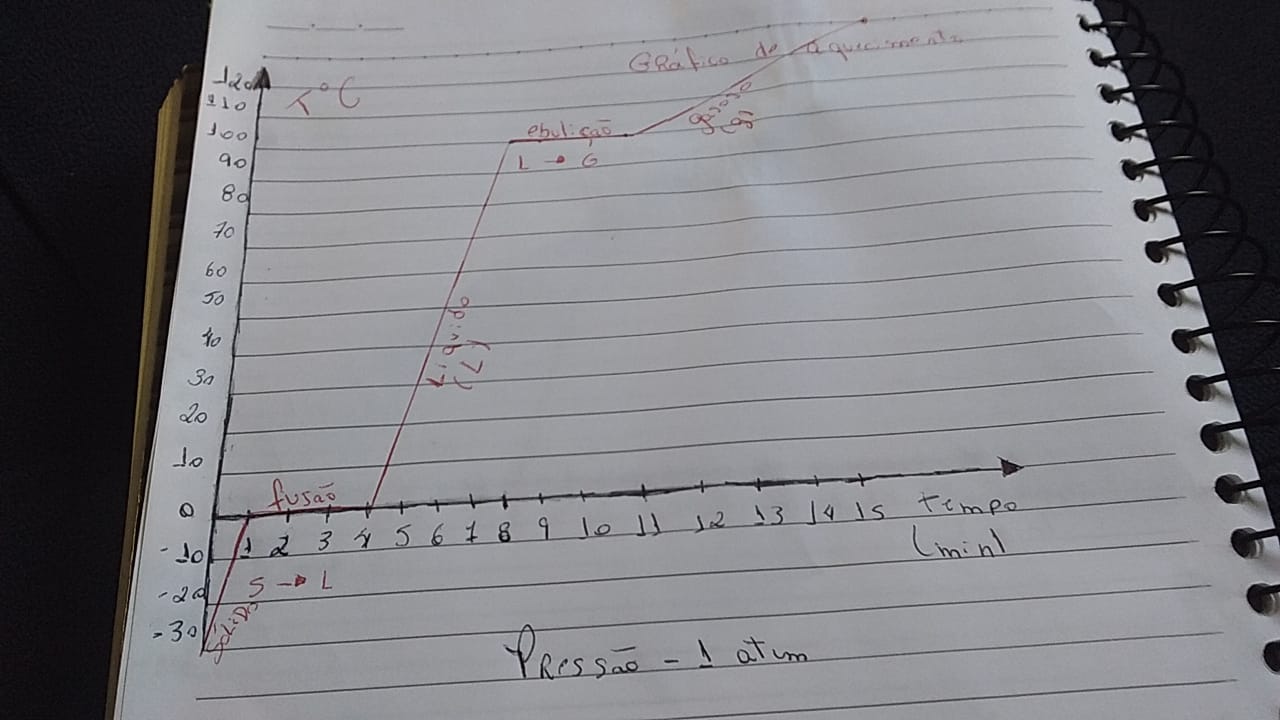 Gráfico de aquecimento
T°C
120
110
100
90
80
70
60
50
40
30
20
10
0
-10
-20
-30
ebulição
L → G
gasoso
(G)
Líquido
(L)
fusão
1 2 3 4 5 6 7 8 9 10 11 12 13 14 15 tempo
(min)
S → L
Sólido
Pressão - 1 atm